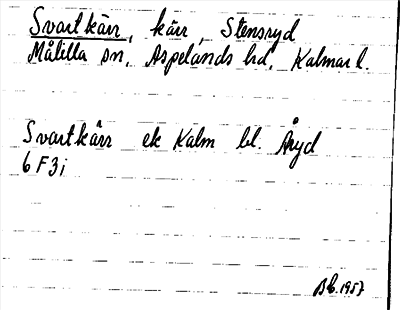 Svartkärr, kärr, Stensryd
Målilla sn, Aspelands hd, Kalmar l.
Svartkärr ek Kalm bl. Åryd
6 F 3 i
1957